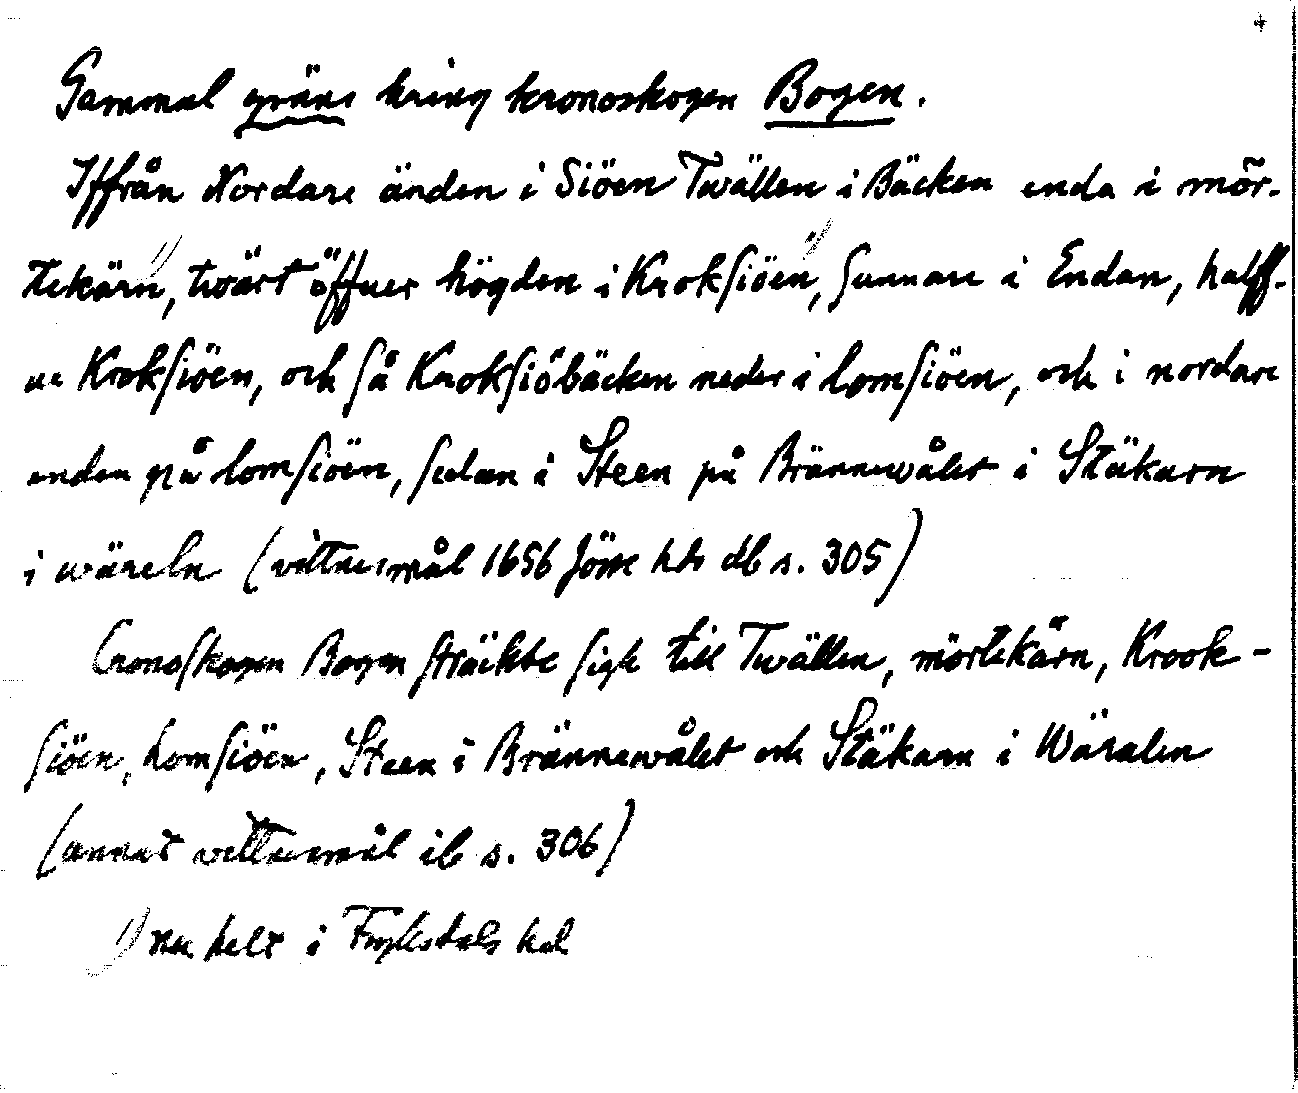 Gammal gräns kring kronoskogen Bogen.
Iffrån Nordare änden i Siöen Twällen i Bäcken enda i mör-
tekärn 1), twärt öffuer högden i Kroksiöen 1), sunnare i Endan, halff-
ue Kroksiöen, och så Kroksiöbäcken neder i lomsiöen, och i nordare
enden på lomsiöen, sedan i Steen på Brännewålet i Stäkarn
i wäreln (vittnesmål 1656 Jösse hds db s. 305)
Cronoskogen Bogen sträckte sigh till Twällen, mörtekärn, Krook-
siöen, Lomsiöen, Steen i Brännewålet och Stäkarn i Wäralen
(annat vittnesmål ib s. 306)
1) nu helt i Fryksdals hd